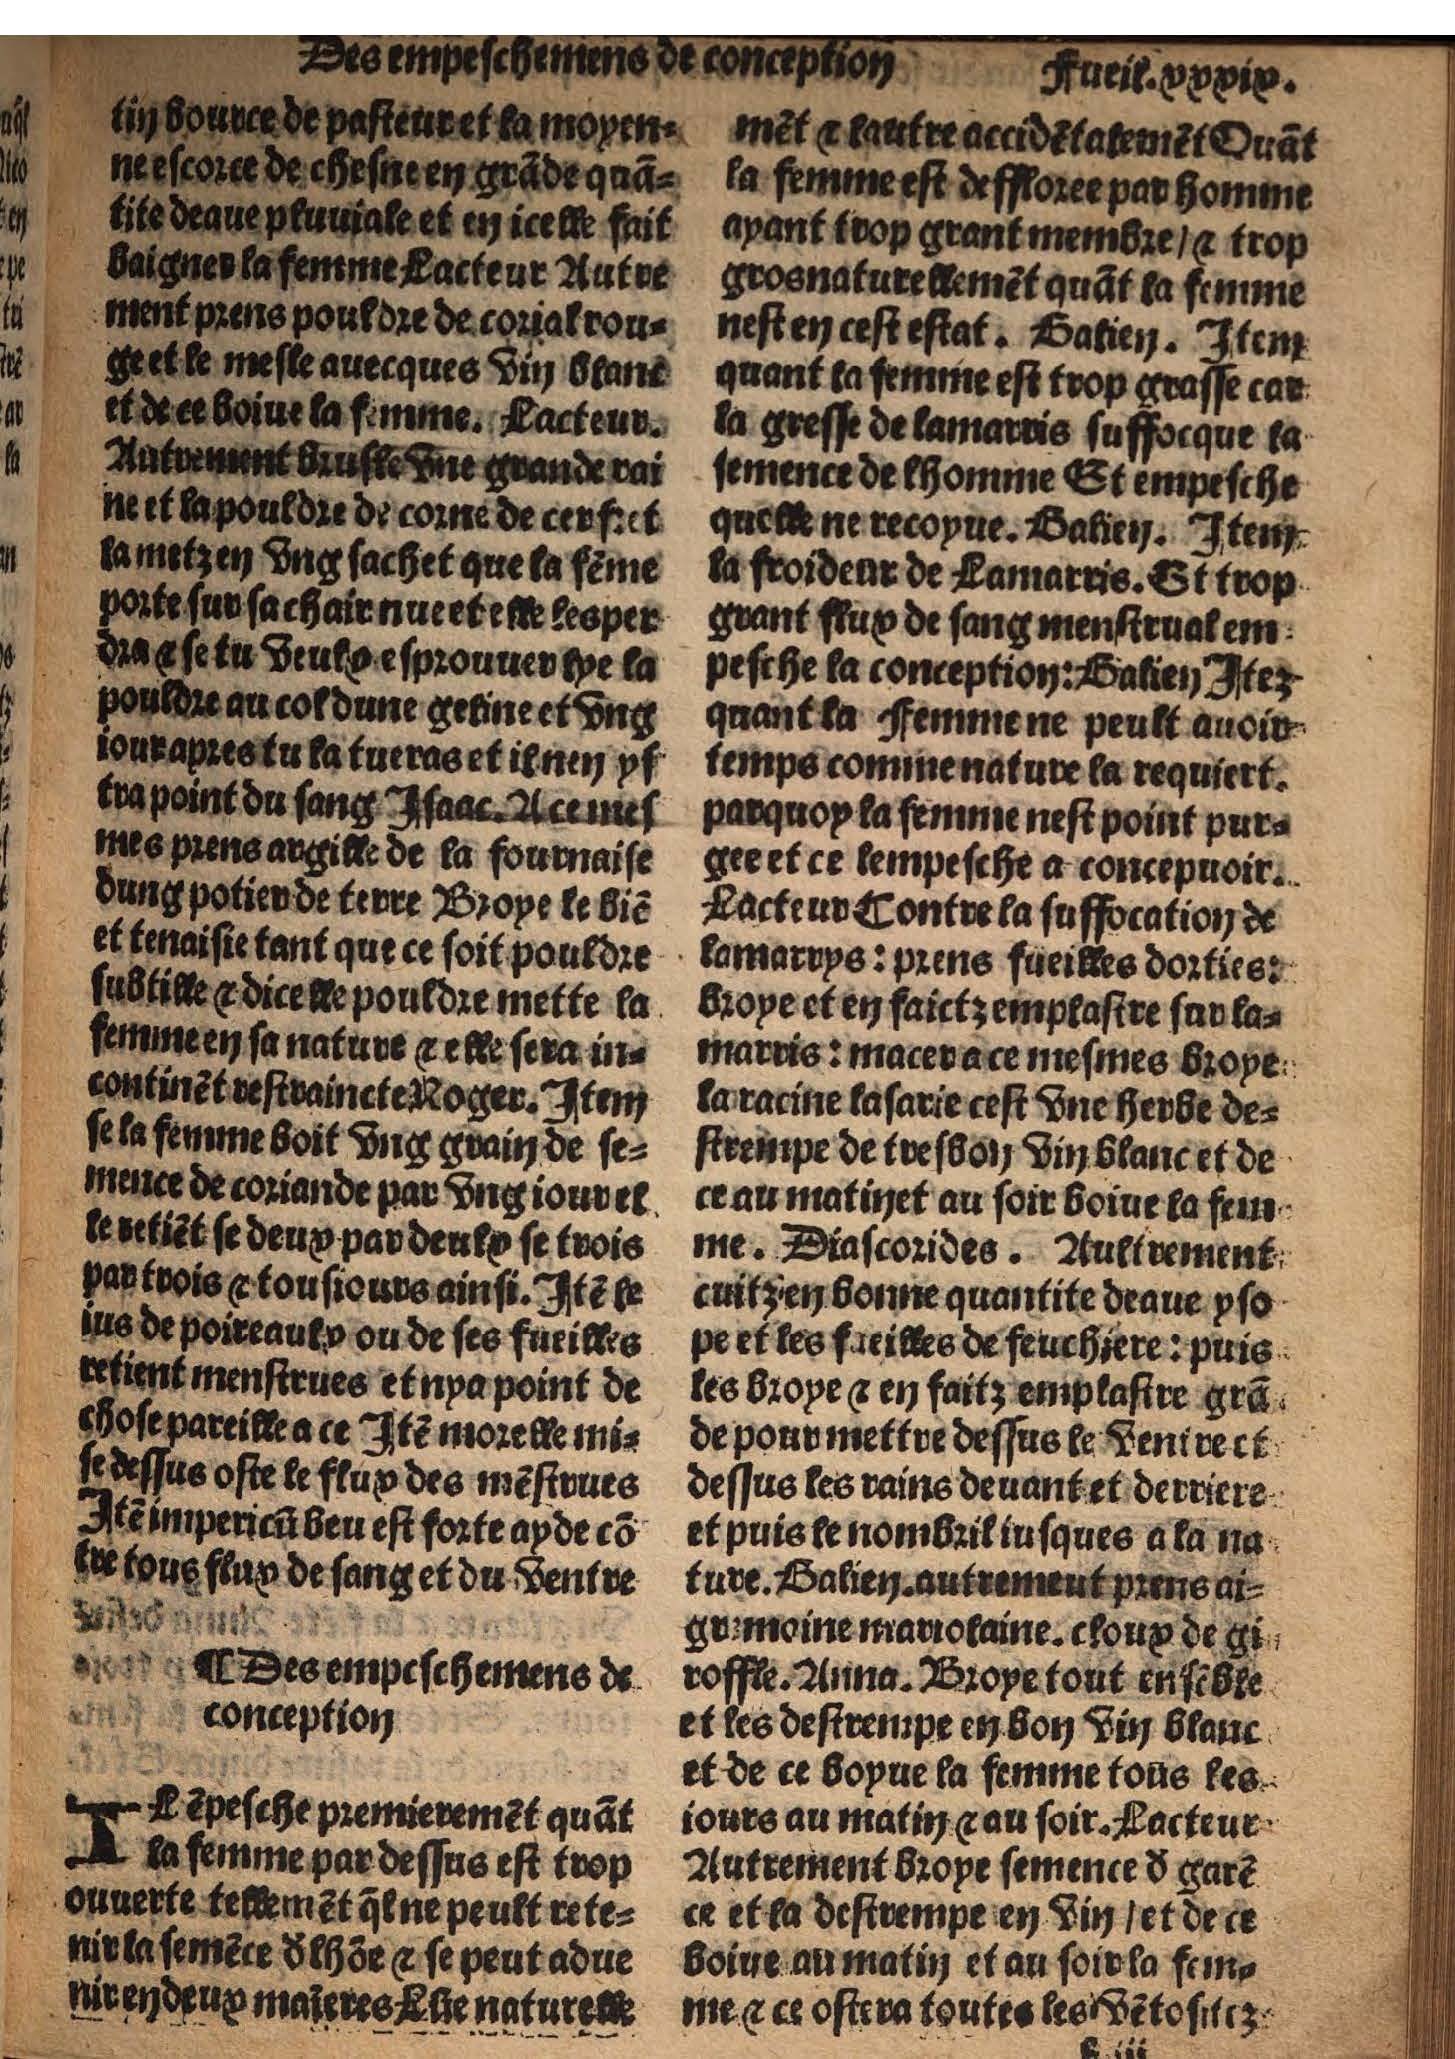 Des empeschemens de conception
Fueil.xxxix.
tin bource de pasteur et la moyen-
ne escorce de chesne en grãde quã-
tite deaue pluuiale et en icelle fait
baigner la femme Lacteur Autre
ment prens pouldre de corial rou-
ge et le mesle auecques vin blanc
et de ce boiue la femme. Lacteur.
Autrement brusle vne grande rai
ne et la pouldre de corne de cerf et
la metz en vng sachet que la fẽme
porte sur sa chair nue et elle lesper
dra & se tu veulx esprouuer lye la
pouldre au col dune geline et vng
iour apres tu la tueras et il nen ys
tra point du sang Isaac. A ce mes
mes prens argille de la fournaise
dung potier de terre Broye le biẽ
et tenaisie tant que ce soit pouldre
subtille & dicelle pouldre mette la
femme en sa nature & elle sera in-
continẽt restraincte Roger. Item
se la femme boit vng grain de se-
mence de coriande par vng iour el
le retiẽt se deux par deulx se trois
par trois & tousiours ainsi. Itẽ le
ius de poireaulx ou de ses fueilles
retient menstrues et nya point de
chose pareille a ce Itẽ morelle mi-
se dessus oste le flux des mẽstrues
Itẽ impericũ beu est forte ayde cõ
tre tous flux de sang et du ventre
¶ Des empeschemens de
conception
IL ẽpesche premieremẽt quãt
la femme par dessus est trop
ouuerte tellemẽt q̃l ne peult rete-
nir la semẽce d̃ lhõe & se peut adue
nir en deux maĩeres Lũe naturelle
mẽt & lautre accidẽtalemẽt Quãt
la femme est deffloree par homme
ayant trop grant membre / & trop
gros naturellemẽt quãt la femme
nest en cest estat. Galien. Item
quant la femme est trop grasse car
la gresse de lamarris suffocque la
semence de lhomme Et empesche
quelle ne recoyue. Galien. Item
la froideur de Lamarris. Et trop
grant flux de sang menstrual em
pesche la conception: Galien Itez
quant la Femme ne peult auoir
temps comme nature la requiert.
parquoy la femme nest point pur-
gee et ce lempesche a concepuoir.
Lacteur Contre la suffocation de
lamarrys: prens fueilles dorties:
broye et en faictz emplastre sur la-
marris: macer a ce mesmes broye
la racine lasarie cest vne herbe de-
strempe de tresbon vin blanc et de
ce au matinet au soir boiue la fem
me. Diascorides. Aultrement
cuitz en bonne quantite deaue yso
pe et les fueilles de feuchiere: puis
les broye & en faitz emplastre grã
de pour mettre dessus le ventre et
dessus les rains deuant et derriere
et puis le nombril iusques a la na
ture. Galien. autrement prens ai-
gremoine mariolaine. cloux de gi
roffle. Anna. Broye tout ensẽble
et les destrempe en bon vin blanc
et de ce boyue la femme tous les
iours au matin & au soir. Lacteur
Autrement broye semence d̃ garẽ
ce et la destrempe en vin / et de ce
boiue au matin et au soir la fem-
me & ce ostera toutes les vẽtositez